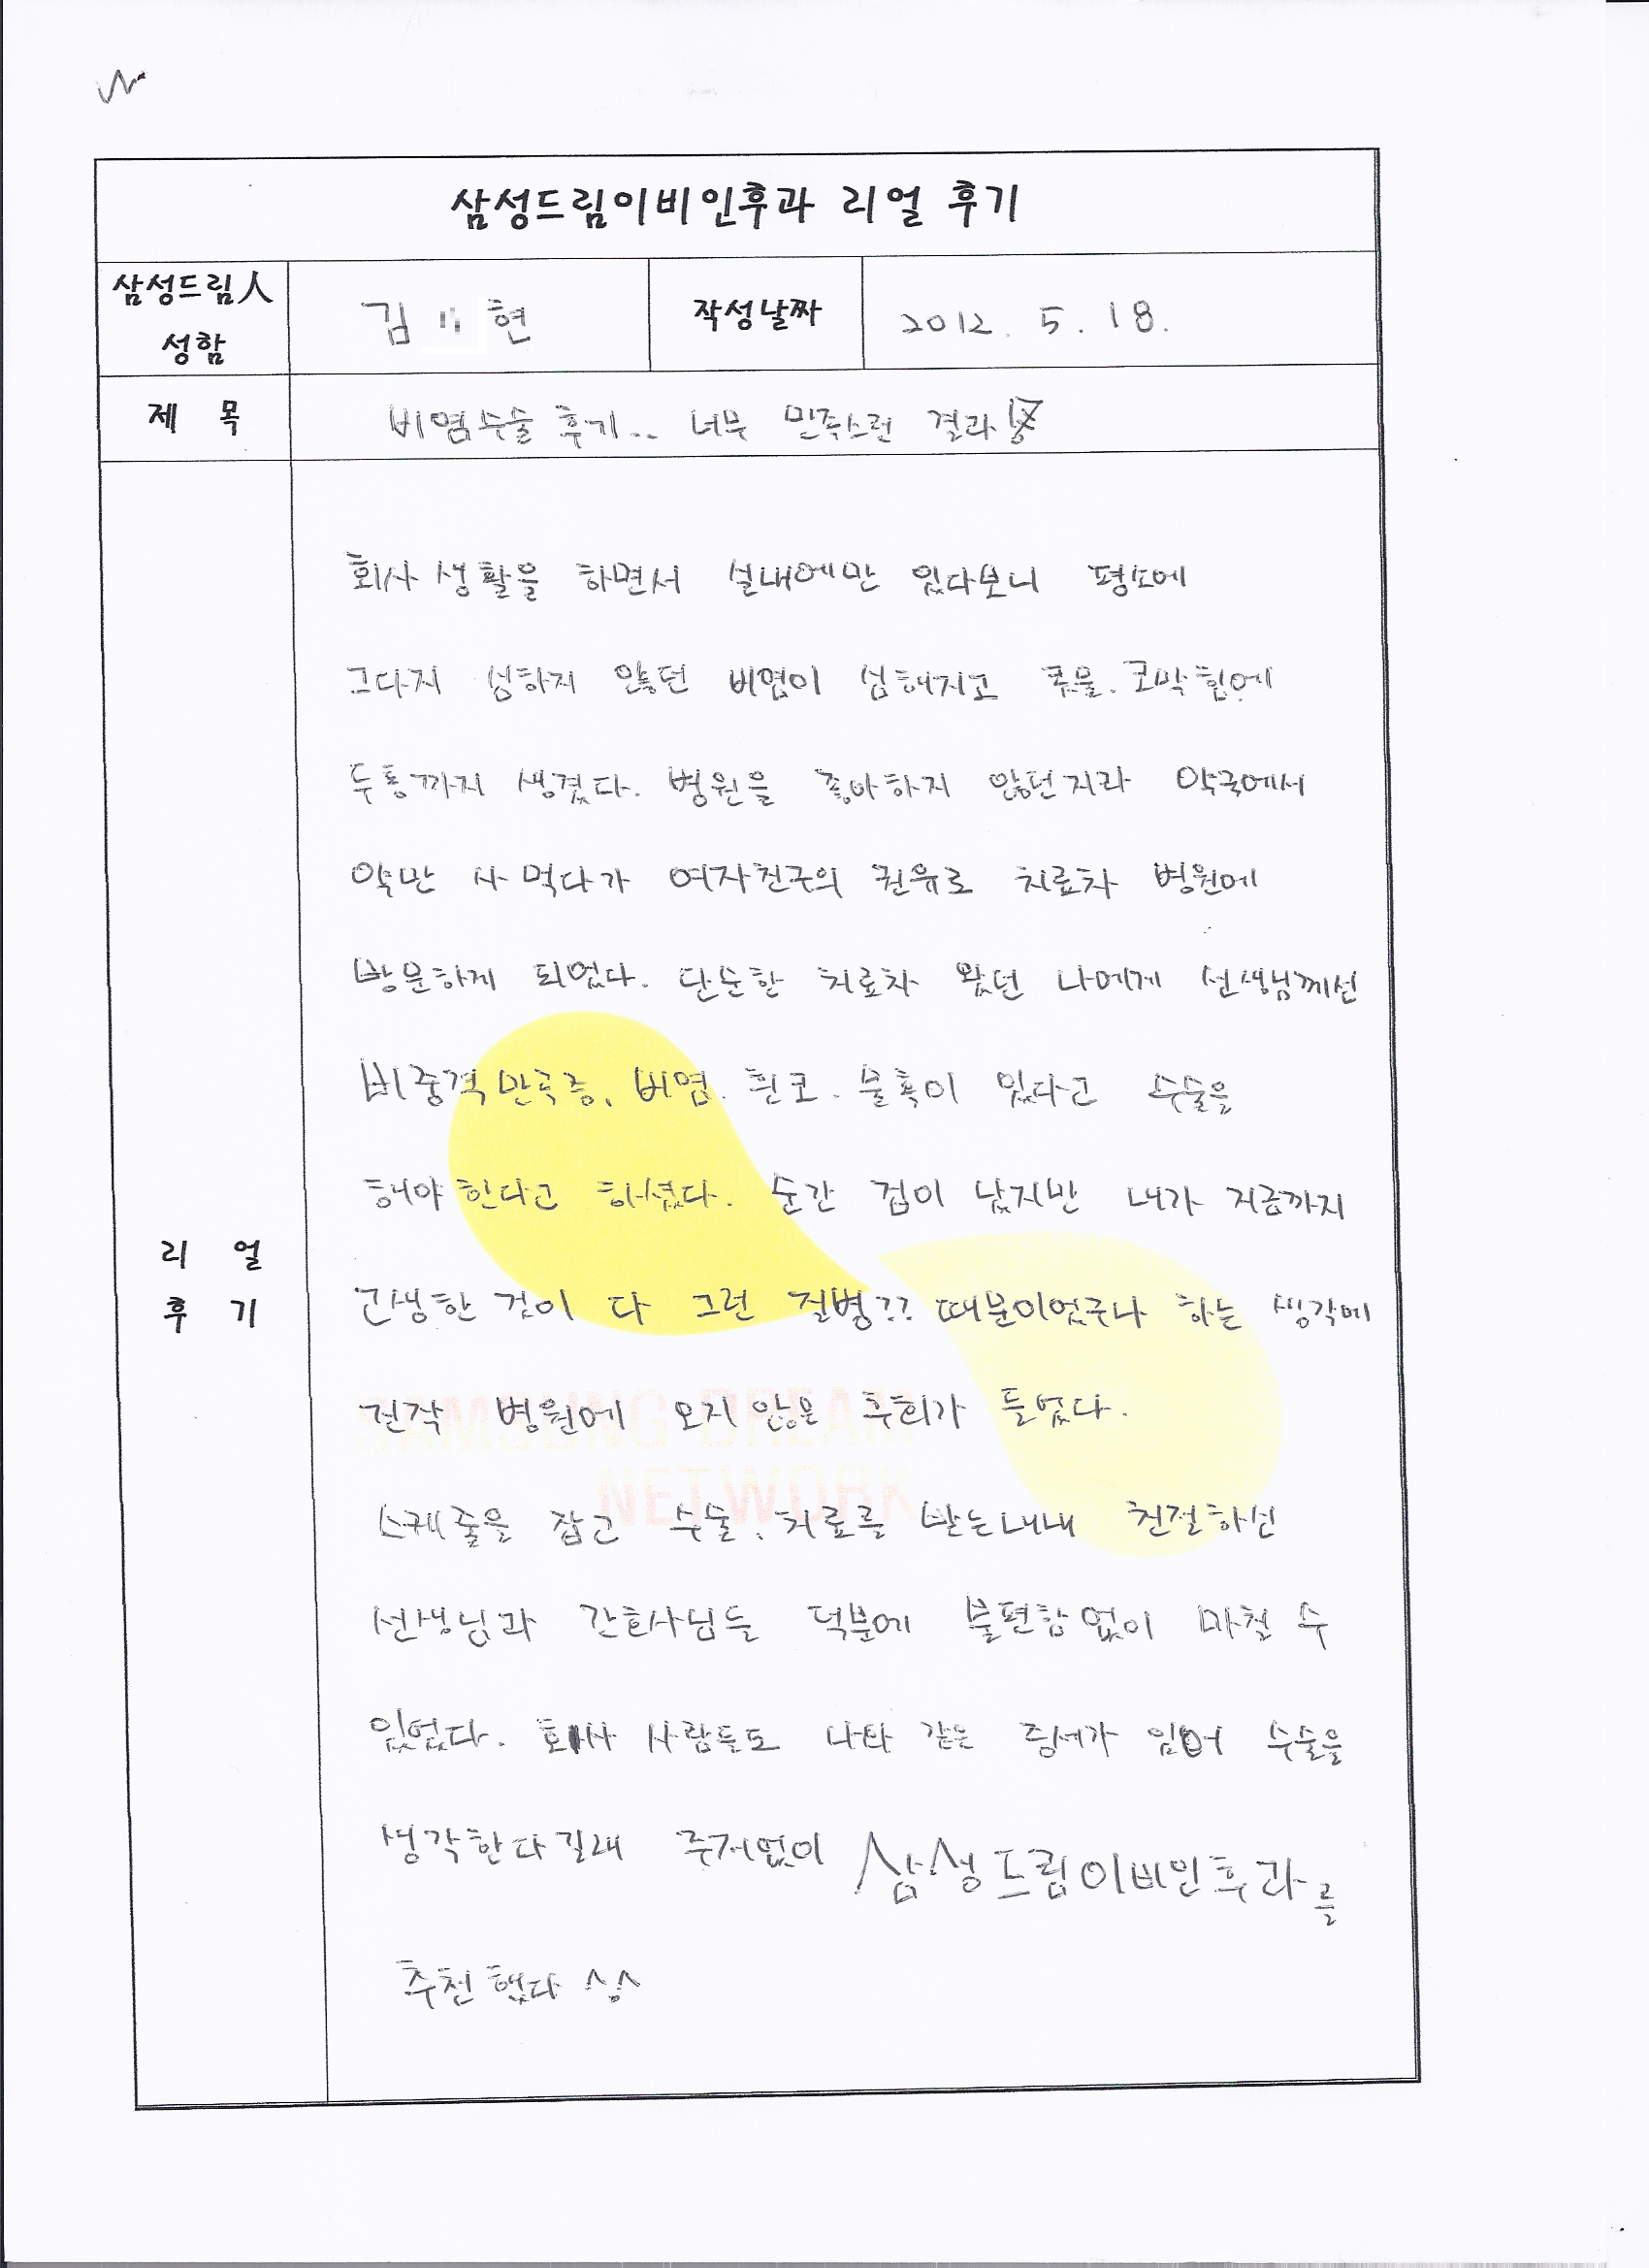 삼성드림이비인후과 리얼 후기
삼성드림人
성함
김 현
작성날짜
2012. 5. 18.
제 목
비염수술 후기.. 너무 만족스런 결과
회사 생활을 하면서 실내에만 있다보니 평소에
그다지 심하지 않던 비염이 심해지고 콧물. 코막힘에
두통까지 생겼다. 병원을 좋아하지 않던지라 약국에서
약만 사 먹다가 여자친구의 권유로 치료차 병원에
방문하게 되었다. 단순한 치료차 왔던 나에게 선생님께선
비중격만곡증, 비염. 휜코. 물혹이 있다고 수술을
해야 한다고 하셨다. 순간 겁이 났지만 내가 지금까지
고생한 것이 다 그런 질병?? 때문이었구나 하는 생각에
진작 병원에 오지 않은 후회가 들었다.
스케줄을 잡고 수술, 치료를 받는내내 친절하신
선생님과 간호사님들 덕분에 불편함없이 마칠 수
있었다. 회사 사람들도 나와 같은 증세가 있어 수술을
생각한다길래 주저없이 삼성드림이비인후과를
추천했다 ^^
리 얼
후 기
SAMSUNG DREAM
NETWORK